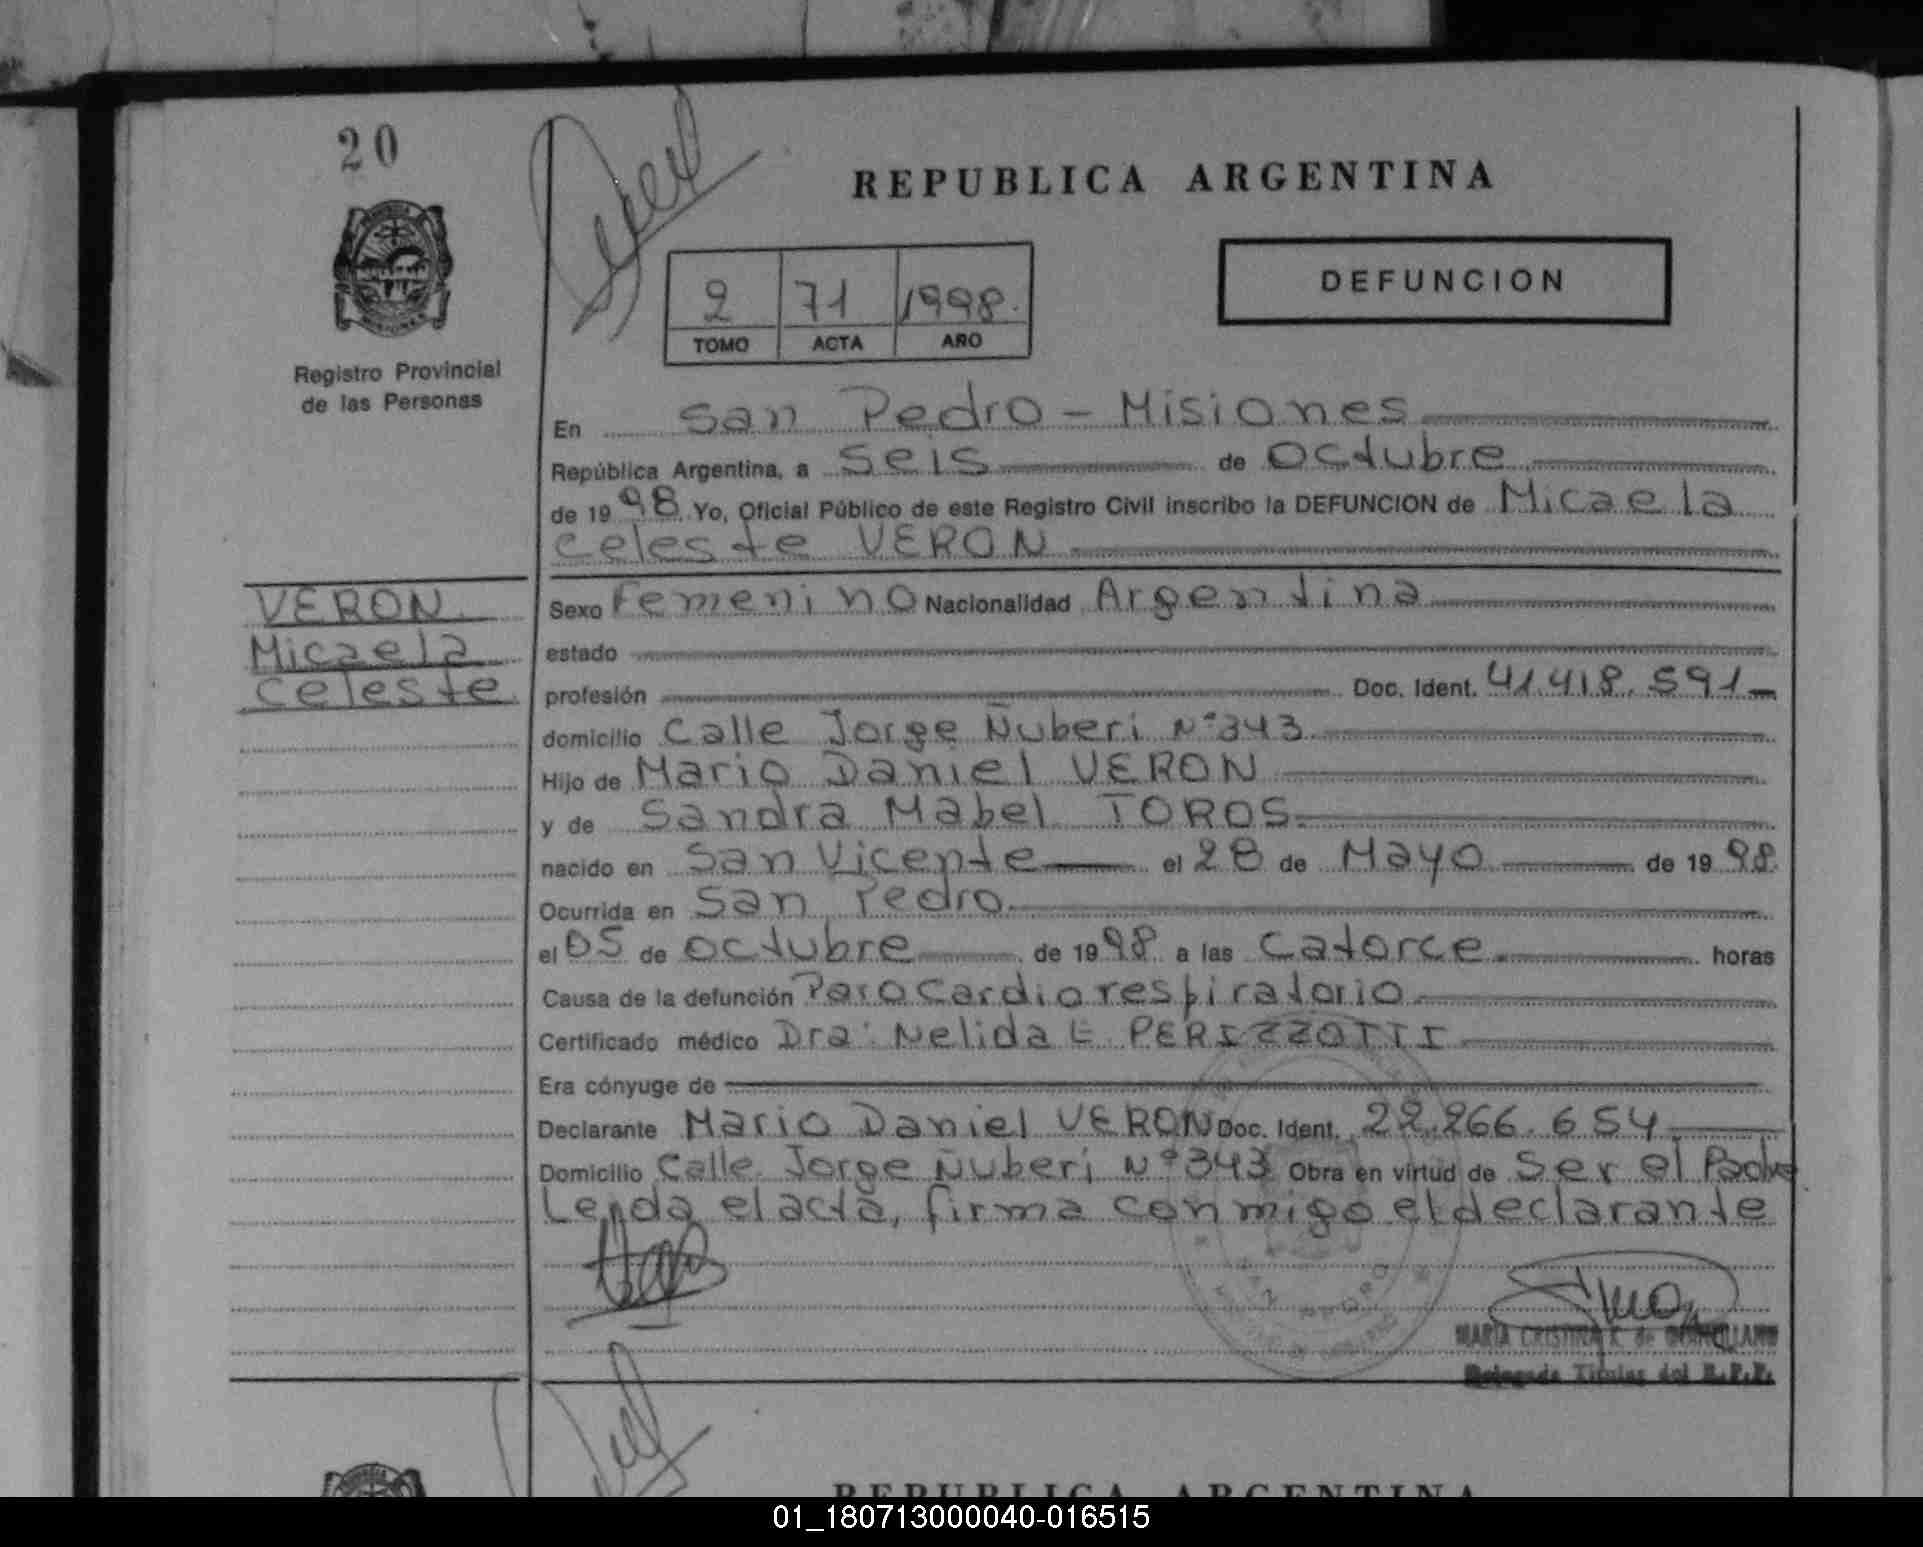 20
REPUBLICA ARGENTINA
DEFUNCION
2 71 1998.
TOMO ACTA AÑO
Registro Provincial
de las Personas
En San Pedro - Misiones
República Argentina, a Seis de Octubre
de 1998. Yo, Oficial Público de este Registro Civil inscribo la DEFUNCION de Micaela
Celeste VERON
VERON
Micaela
Celeste
Sexo Femenino Nacionalidad Argentina
estado
profesión Doc. Ident. 41.418.591
domicilio Calle Jorge Ñuberi N° 343
Hijo de Mario Daniel VERON
y de Sandra Mabel TOROS.
nacido en San Vicente el 28 de Mayo de 1998.
Ocurrida en San Pedro
el 05 de octubre de 1998 a las catorce horas
Causa de la defunción Paro Cardiorespiratorio
Certificado médico Dra: Nelida E PERIZZOTTI
Era cónyuge de
Declarante Mario Daniel VERON Doc. Ident. 22.266.654
Domicilio Calle Jorge Ñuberi N° 343 Obra en virtud de Ser el Padre
Leida el acta, firma conmigo el declarante
MARIA CRISTINA K. de
Delegada Titular del R.P.P.
REPUBLICA ARGENTINA
01_180713000040-016515